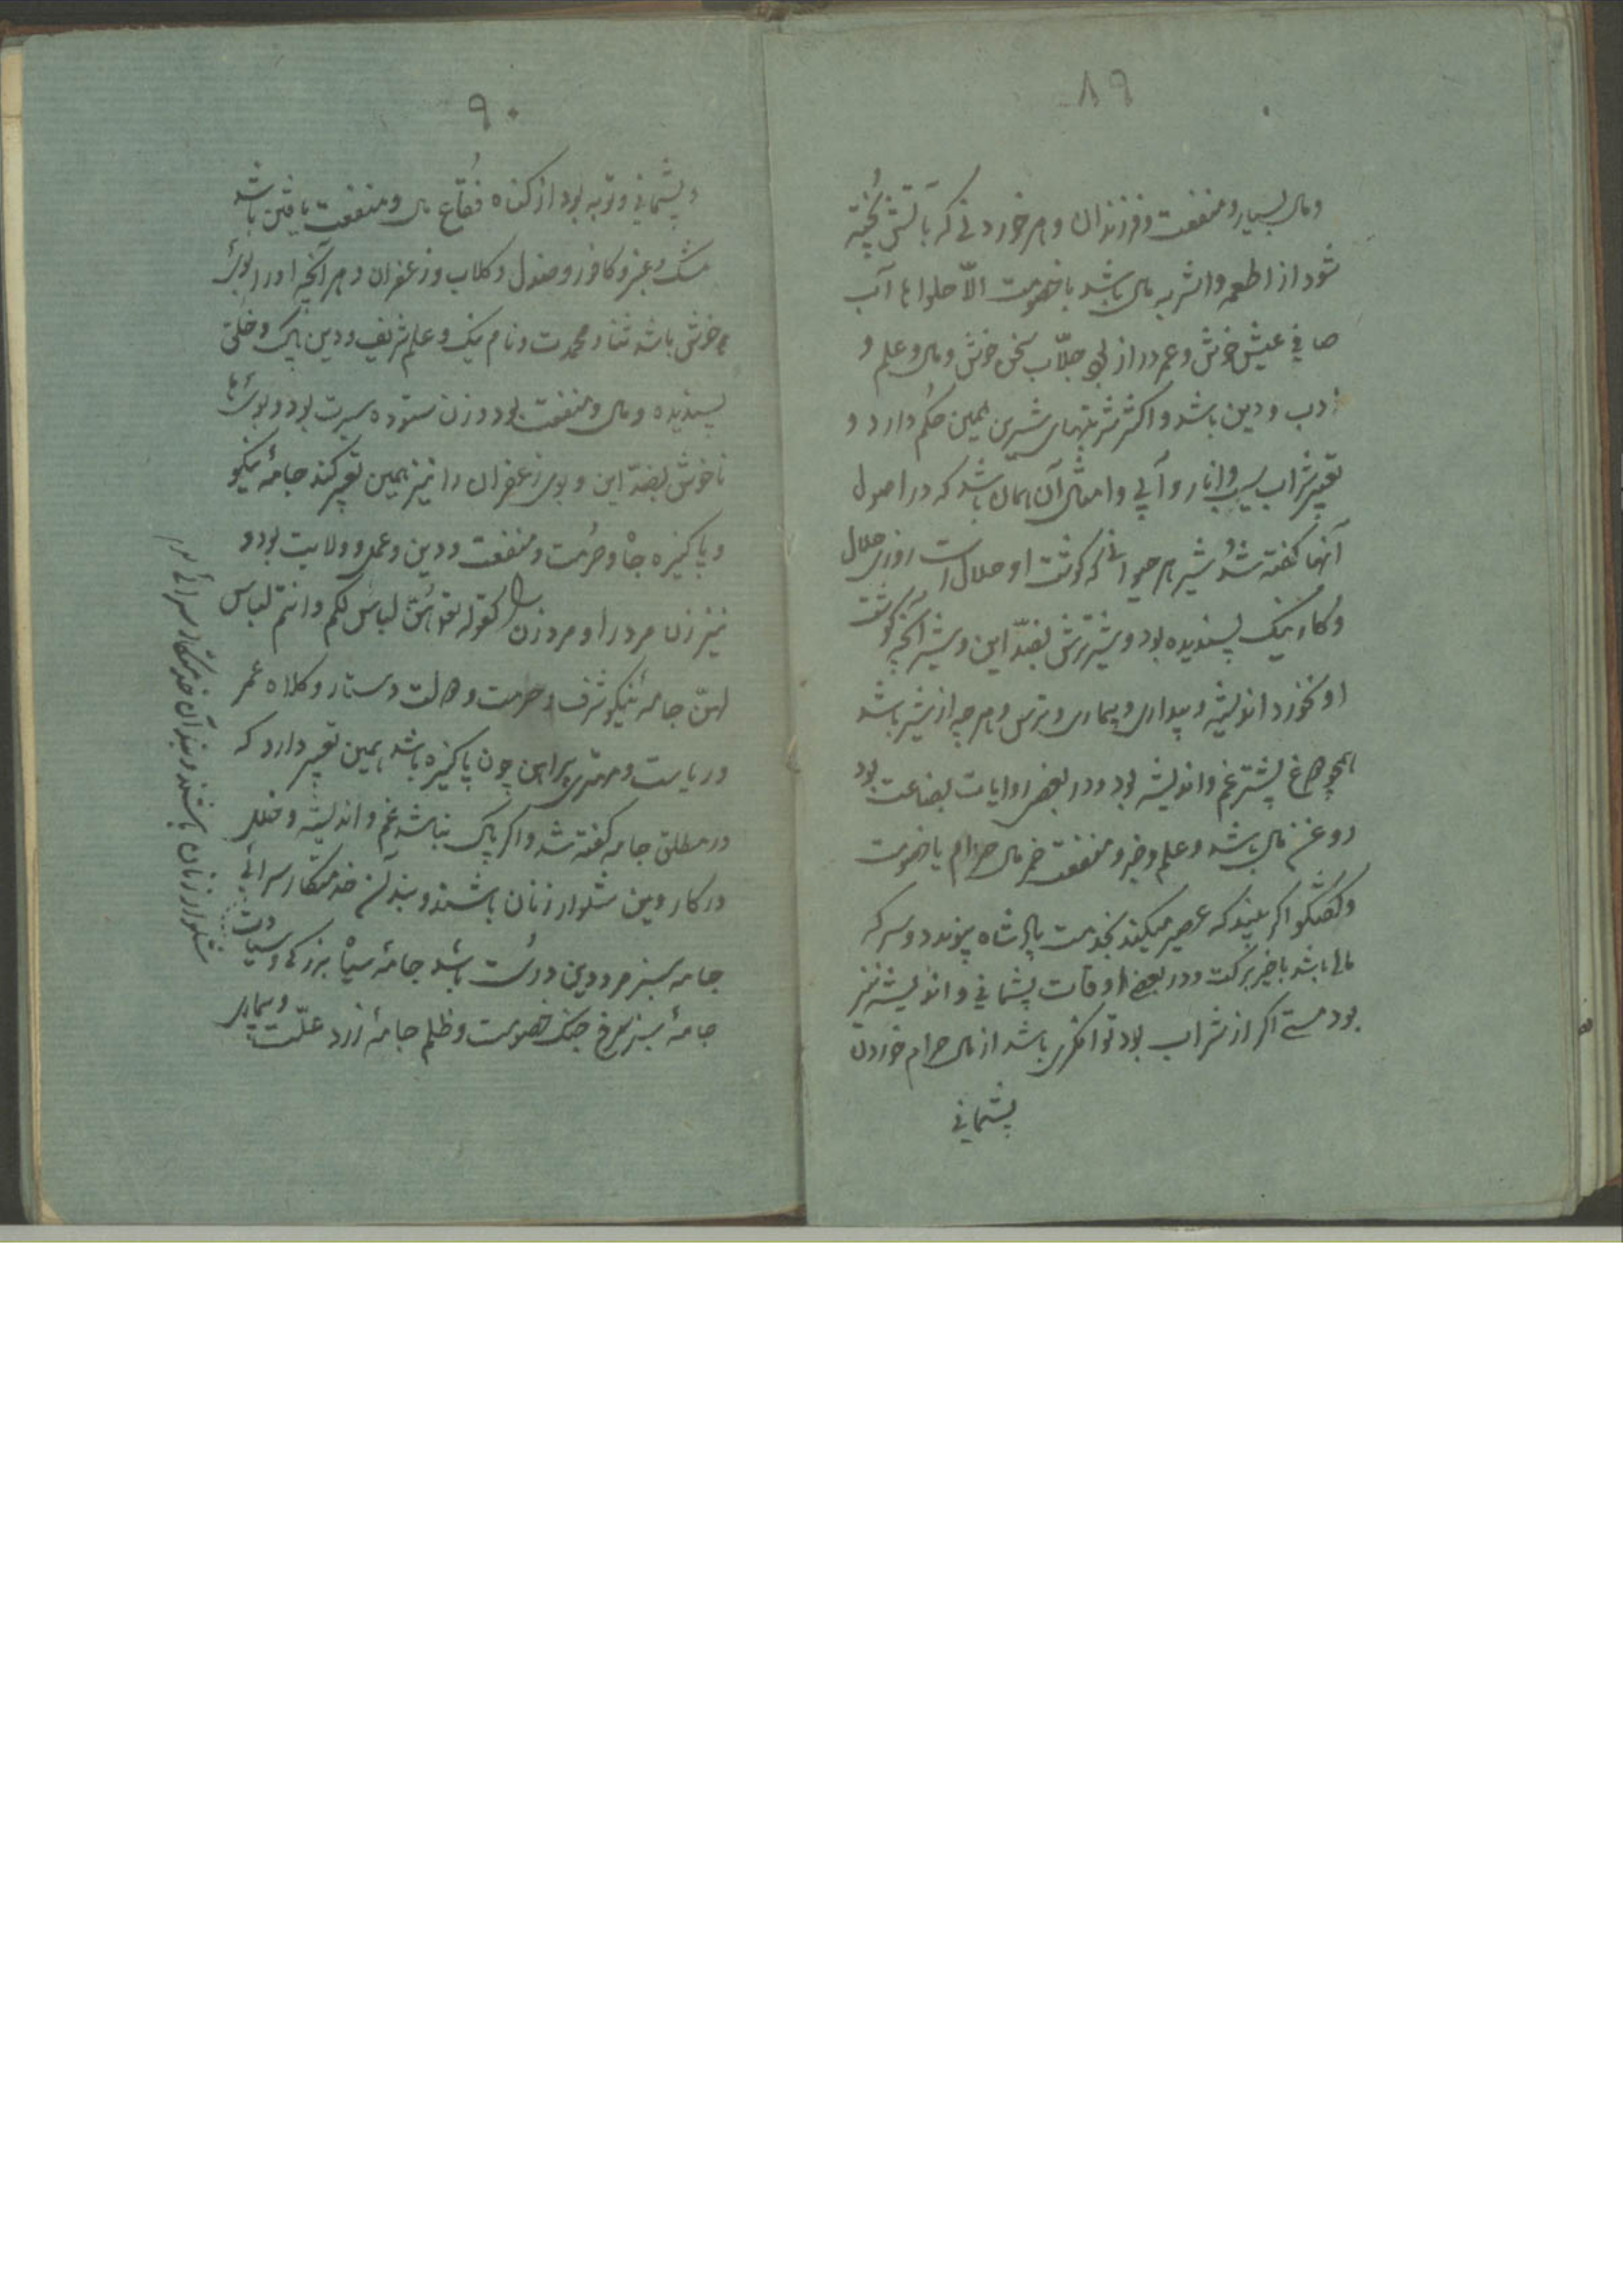 ۸۹
ومال بسیار و منفعت و فرزندان و هر خوردنی که بآتش پخته
شود از اطعمه و اشربه مال باشد با خصومت الّا حلواها آب
صافی عیش خوش و عمر دراز بود جلّاب سخن خوش و مال و علم و
ادب و دین باشد و اکثر شربتهای شیرین همین حکم دارد و
تعبیر شراب سیب و انار و آبی و امثال آن همان باشد که در اصول
آنها گفته شد و شیر هر حیوانی که گوشت او حلال است روزی حلال
و کار نیک پسندیده بود و شیر ترش بضدّ این و شیر آنچه گوشت
او نخورند اندیشه و بیماری و ترس و هر چه از شیر باشد
همچو ماغ پیشتر غم و اندیشه بود و در بعضی روایات بضاعت بود
روغن مال باشد و علم و خیر و منفعت خمر مال حرام با خصومت
و گفتگو اگر بیند که عصیر میکند بخدمت پادشاه پیوندد و سرکه
مالی باشد با خیر برکت و در بعضی اوقات پشمانی و اندیشه نیز
بود مستی اگر از شراب بود توانگری باشد از مال حرام خوردن
پشمانی
۹۰
و پشمانی و توبه بود از گناه فقّاع مال و منفعت یافتن باشد
مشک و عنبر و کافور و صندل و گلاب و زعفران و هر آنچه او را بوی
خوش باشد ثنا و محمدت و نام نیک و علم شریف و دین پاک و خلق
پسندیده و مال و منفعت بود و زن ستوده سیرت بود و بوی‌ها
ناخوش بضدّ این و بوی زعفران را نیز همین تعبیر کنند جامهٔ نیکو
و پاکیزه جاه و حرمت و منفعت و دین و عمل و ولایت بود و
نیز زن مرد را و مرد زن را کقوله تع هُنّ لباس لکم و انتم لباس
لهنّ جامهٔ نیکو شرف و حرمت و دستار و کلاه عمر
و ریاست و مهتری پیراهن چون پاکیزه باشد همین تعبیر دارد که
در مطلق جامه گفته شد و اگر پاک نباشد غم و اندیشه و خلل
در کار دین شلوار زنان باشند و بند آن خدمتکار سرائی
جامه سبز مرد و دین درست باشد جامهٔ سیاه بزرگی و سیادت
جامهٔ سرخ جنگ خصومت و ظلم جامهٔ زرد علّت و بیماری
شلوار زنان باشند و بند آن خدمتکار سرائی